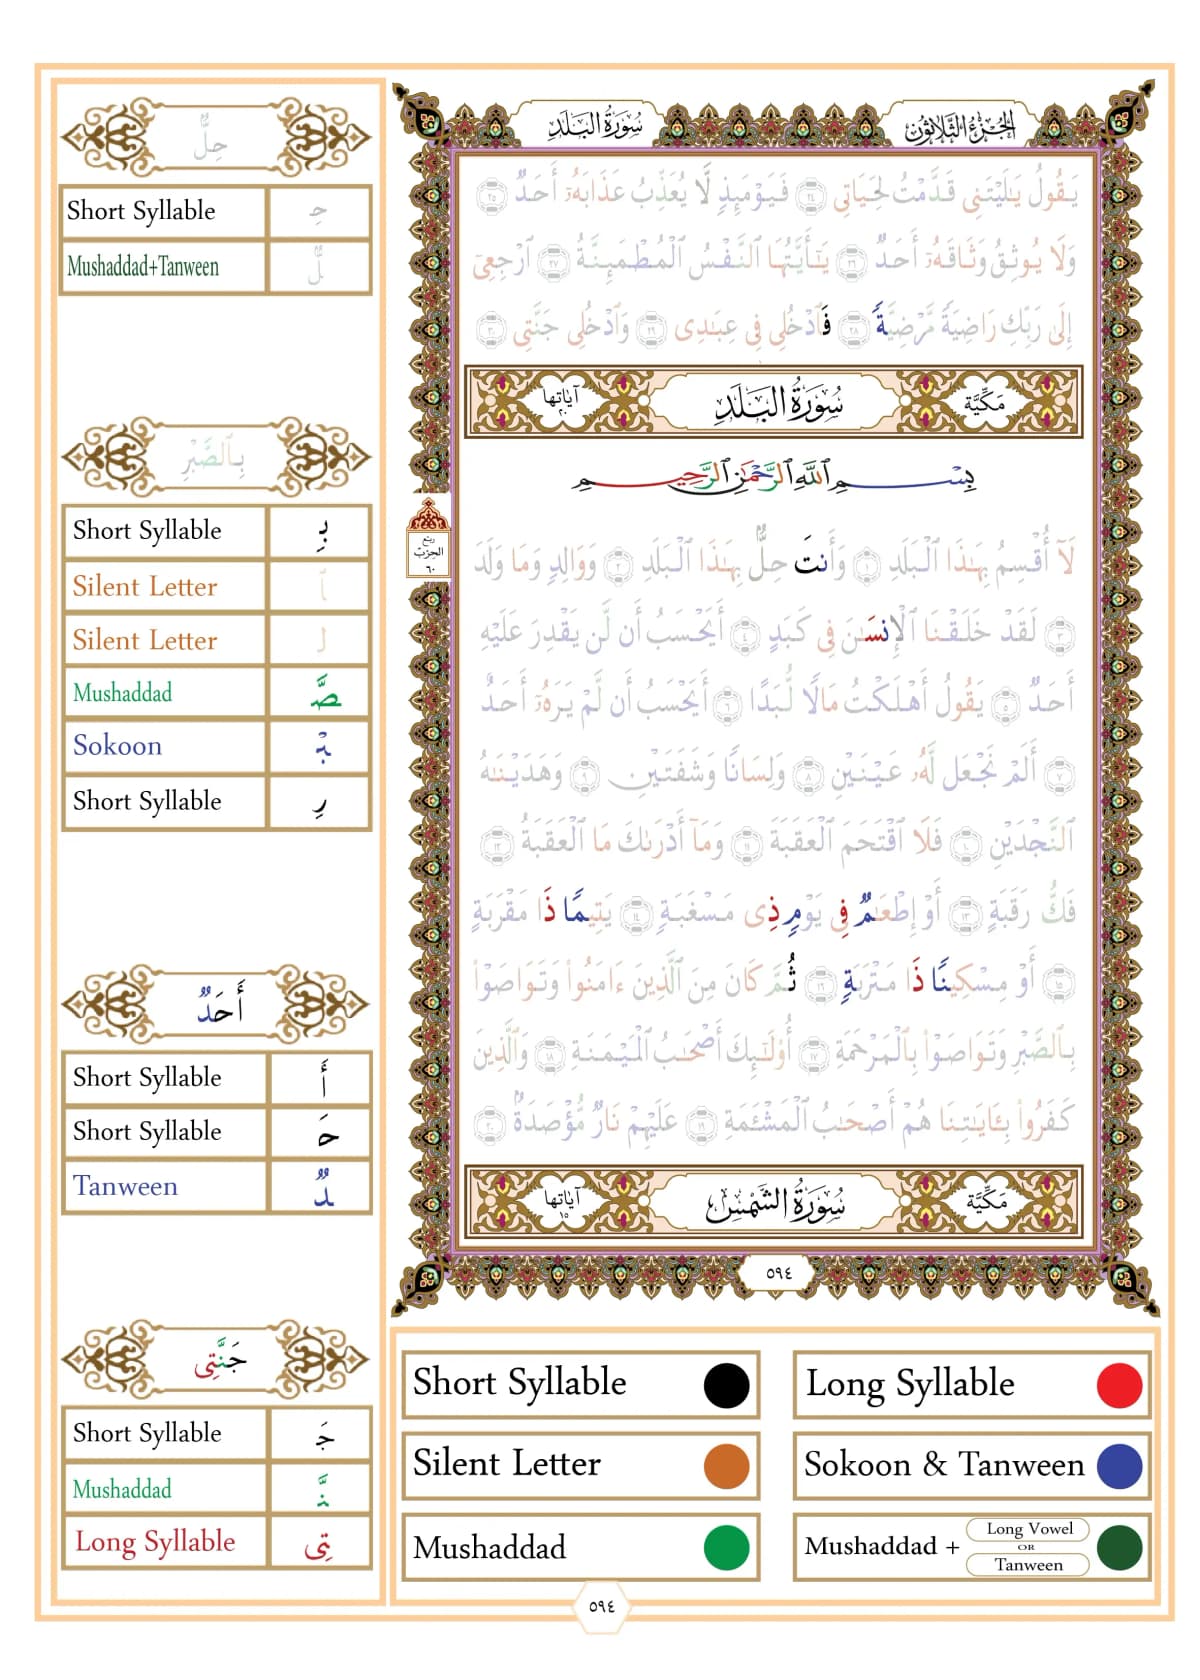 الجزء الثلاثون
سورة البلد
يَقُولُ يَٰلَيْتَنِى قَدَّمْتُ لِحَيَاتِى ٢٤ فَيَوْمَئِذٍ لَّا يُعَذِّبُ عَذَابَهُۥٓ أَحَدٌ ٢٥
وَلَا يُوثِقُ وَثَاقَهُۥٓ أَحَدٌ ٢٦ يَٰٓأَيَّتُهَا ٱلنَّفْسُ ٱلْمُطْمَئِنَّةُ ٢٧ ٱرْجِعِىٓ
إِلَىٰ رَبِّكِ رَاضِيَةً مَّرْضِيَّةً ٢٨ فَٱدْخُلِى فِى عِبَٰدِى ٢٩ وَٱدْخُلِى جَنَّتِى ٣٠
مكية
سُورَةُ البَلَدِ
آياتها ٢٠
بِسْمِ ٱللَّهِ ٱلرَّحْمَٰنِ ٱلرَّحِيمِ
ربع الحزب ٦٠
لَآ أُقْسِمُ بِهَٰذَا ٱلْبَلَدِ ١ وَأَنتَ حِلٌّۢ بِهَٰذَا ٱلْبَلَدِ ٢ وَوَالِدٍ وَمَا وَلَدَ
٣ لَقَدْ خَلَقْنَا ٱلْإِنسَٰنَ فِى كَبَدٍ ٤ أَيَحْسَبُ أَن لَّن يَقْدِرَ عَلَيْهِ
أَحَدٌ ٥ يَقُولُ أَهْلَكْتُ مَالًا لُّبَدًا ٦ أَيَحْسَبُ أَن لَّمْ يَرَهُۥٓ أَحَدٌ
٧ أَلَمْ نَجْعَل لَّهُۥ عَيْنَيْنِ ٨ وَلِسَانًا وَشَفَتَيْنِ ٩ وَهَدَيْنَٰهُ
ٱلنَّجْدَيْنِ ١٠ فَلَا ٱقْتَحَمَ ٱلْعَقَبَةَ ١١ وَمَآ أَدْرَىٰكَ مَا ٱلْعَقَبَةُ ١٢
فَكُّ رَقَبَةٍ ١٣ أَوْ إِطْعَٰمٌ فِى يَوْمٍ ذِى مَسْغَبَةٍ ١٤ يَتِيمًا ذَا مَقْرَبَةٍ
١٥ أَوْ مِسْكِينًا ذَا مَتْرَبَةٍ ١٦ ثُمَّ كَانَ مِنَ ٱلَّذِينَ ءَامَنُوا۟ وَتَوَاصَوْا۟
بِٱلصَّبْرِ وَتَوَاصَوْا۟ بِٱلْمَرْحَمَةِ ١٧ أُو۟لَٰٓئِكَ أَصْحَٰبُ ٱلْمَيْمَنَةِ ١٨ وَٱلَّذِينَ
كَفَرُوا۟ بِـَٔايَٰتِنَا هُمْ أَصْحَٰبُ ٱلْمَشْـَٔمَةِ ١٩ عَلَيْهِمْ نَارٌ مُّؤْصَدَةٌۢ ٢٠
مكية
سُورَةُ الشَّمْسِ
آياتها ١٥
٥٩٤
حِلٌّۢ
Short Syllable حِـ
Mushaddad+Tanween لٌّۢ
بِٱلصَّبْرِ
Short Syllable بِـ
Silent Letter ٱ
Silent Letter لـ
Mushaddad صَّـ
Sokoon ـبْـ
Short Syllable رِ
أَحَدٌ
Short Syllable أَ
Short Syllable حَـ
Tanween ـدٌ
جَنَّتِى
Short Syllable جَـ
Mushaddad ـنَّـ
Long Syllable تِى
Short Syllable
Long Syllable
Silent Letter
Sokoon & Tanween
Mushaddad
Mushaddad + Long Vowel OR Tanween
٥٩٤